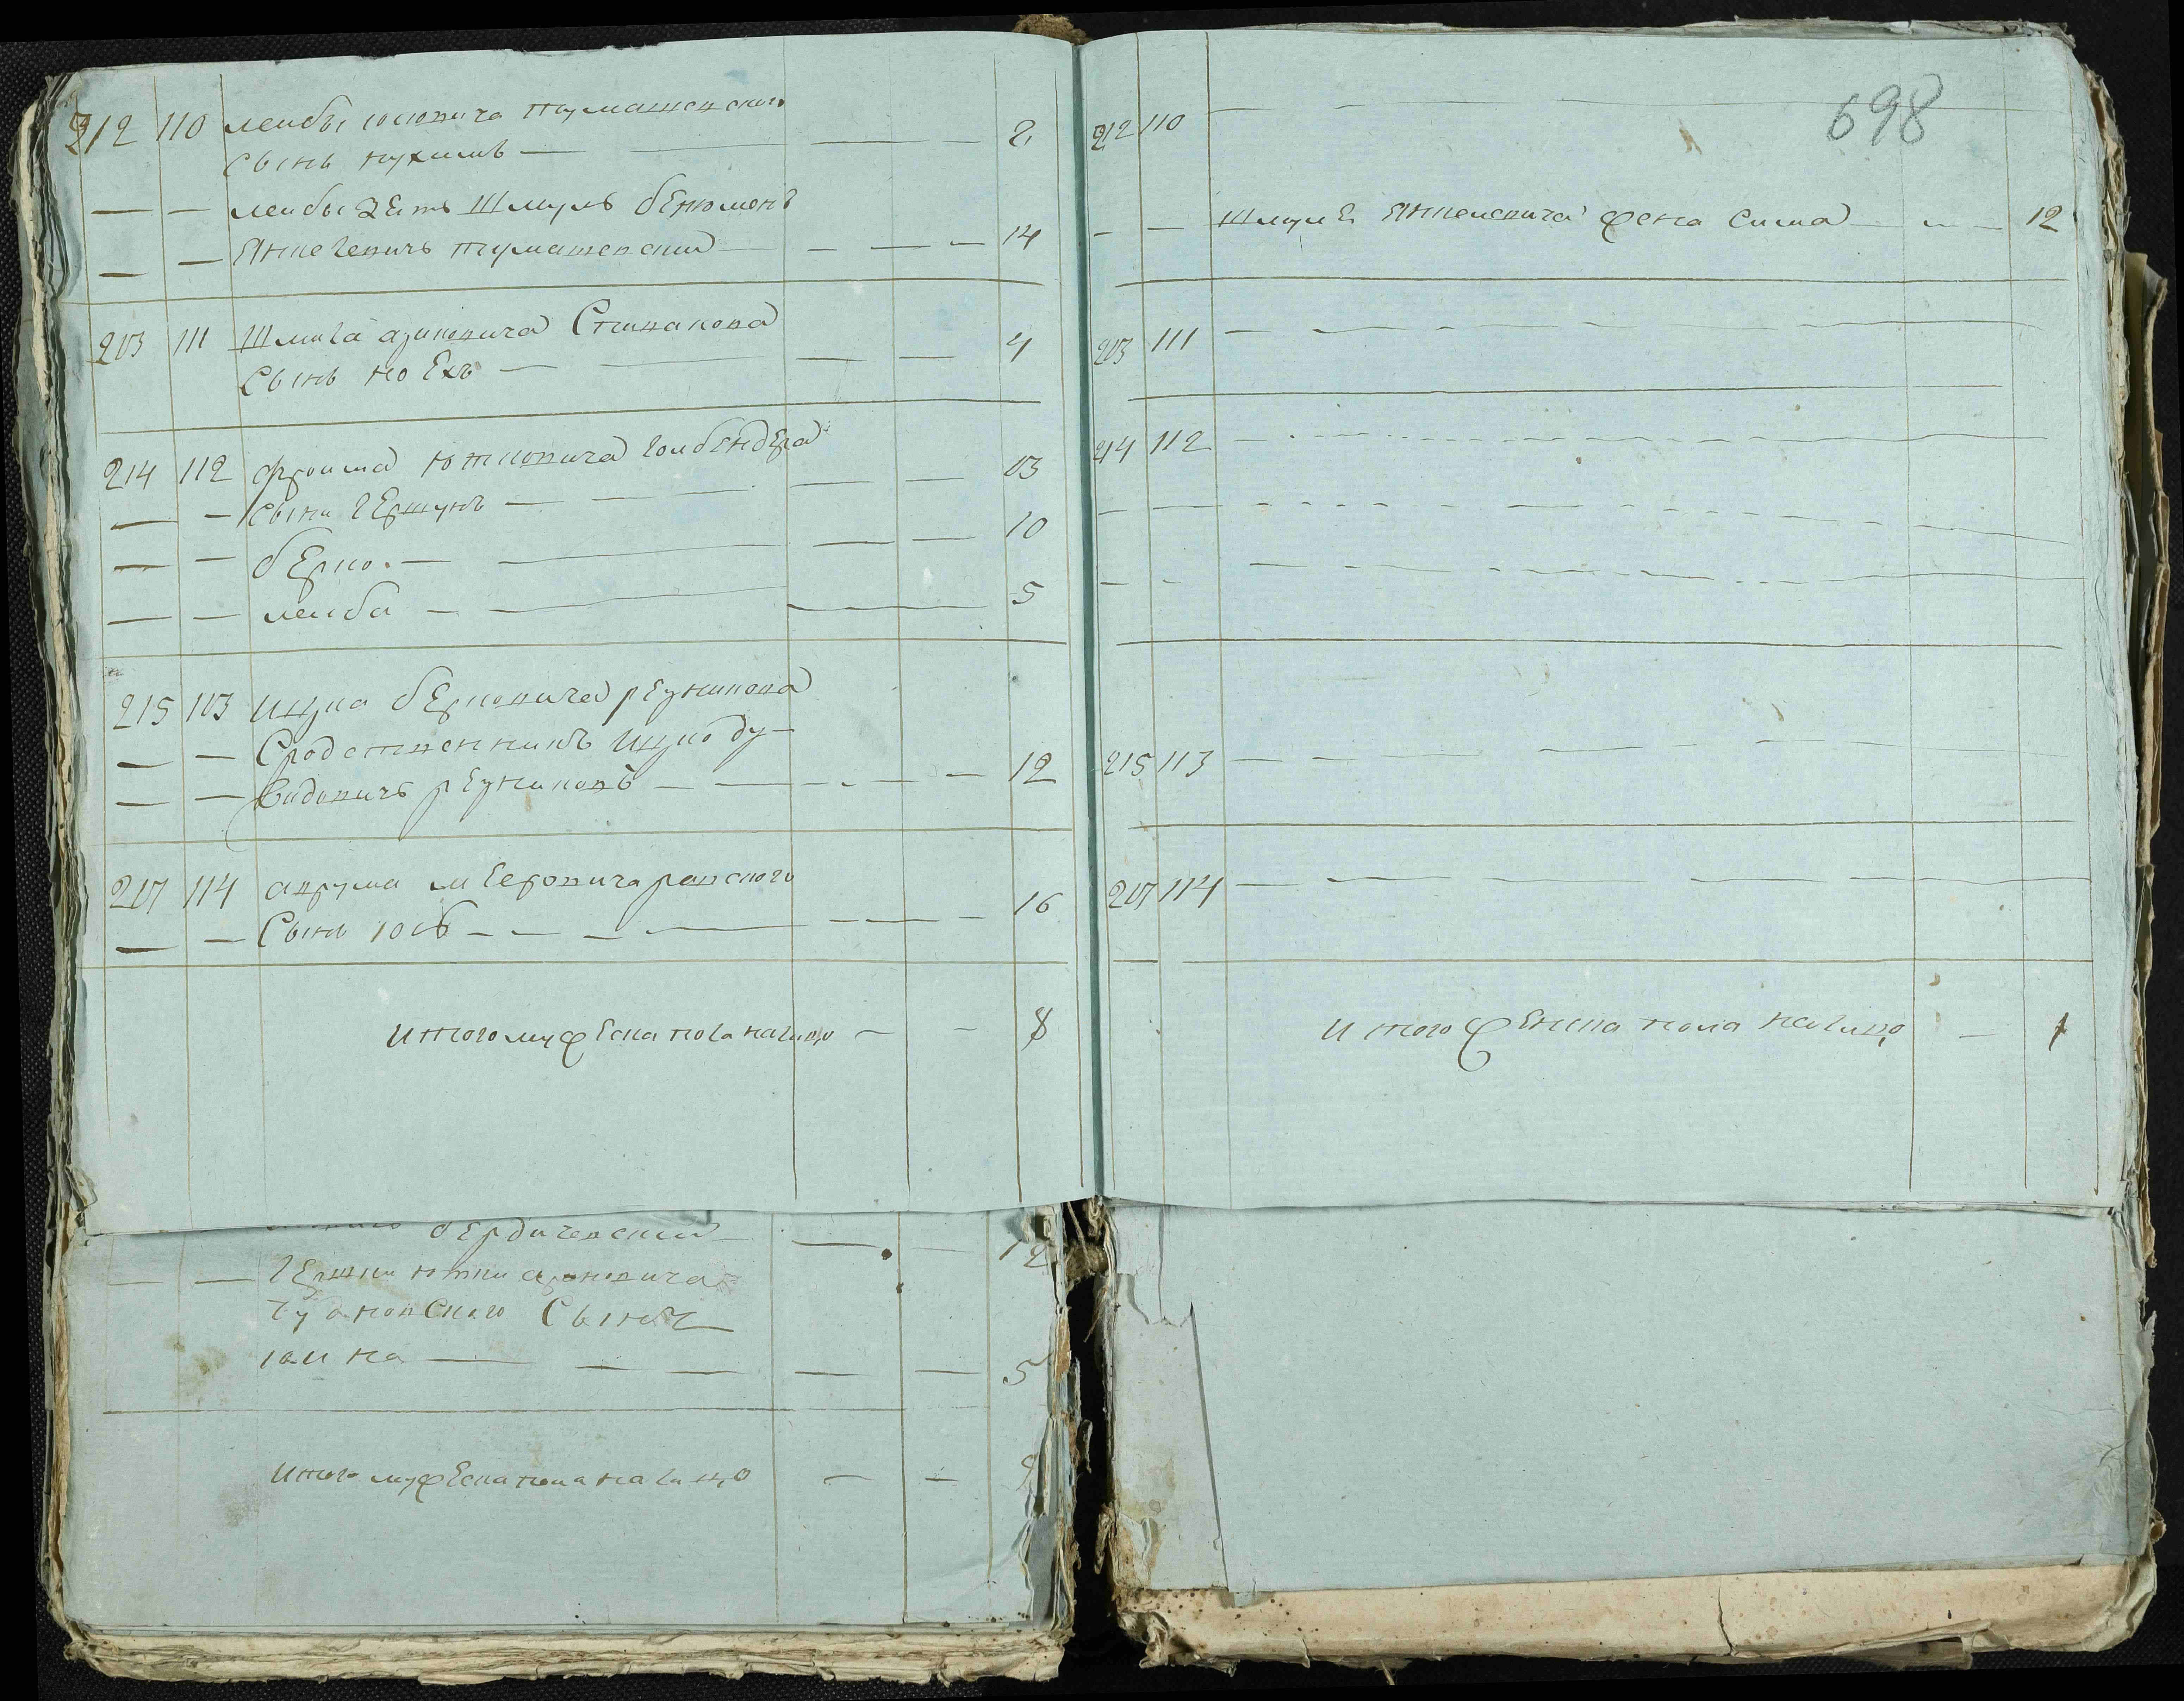 212 110 лейбы іосиовича тумашевского
сынъ нухимъ — — — — 2
— — лейбы зять Шмуль бенюменъ
— — Янкелевичь тумашевский — — — — 14
213 111 Шмила азиковича Спивакова
Сынъ ноехъ — — — — 4
214 112 фроима ютковича голбендера
— — сыни гершунъ — — — — 13
— — берко — — — — 10
— — лейба — — — — 5
215 113 ицка берковича резникова
— — Сродственникъ ицко ду-
— — видовичь резниковъ — — — — 12
217 114 аврума мееровича равского
— — Сынъ іосъ — — — — 16
итого мужеска пола налицо — — 8
бердичевский — — 12
— — гершки ютки ароновича
чудновского Сынъ
— — — — 5
итого мужеска пола налицо — — 9
698
212 110 — — —
— — Шмуля Янкелевича жена сима — — 12
213 111 — — — —
214 112 — — — —
— — — — — —
— — — — — —
215 113 — — — —
217 114 — — — —
итого женска пола налицо — 1